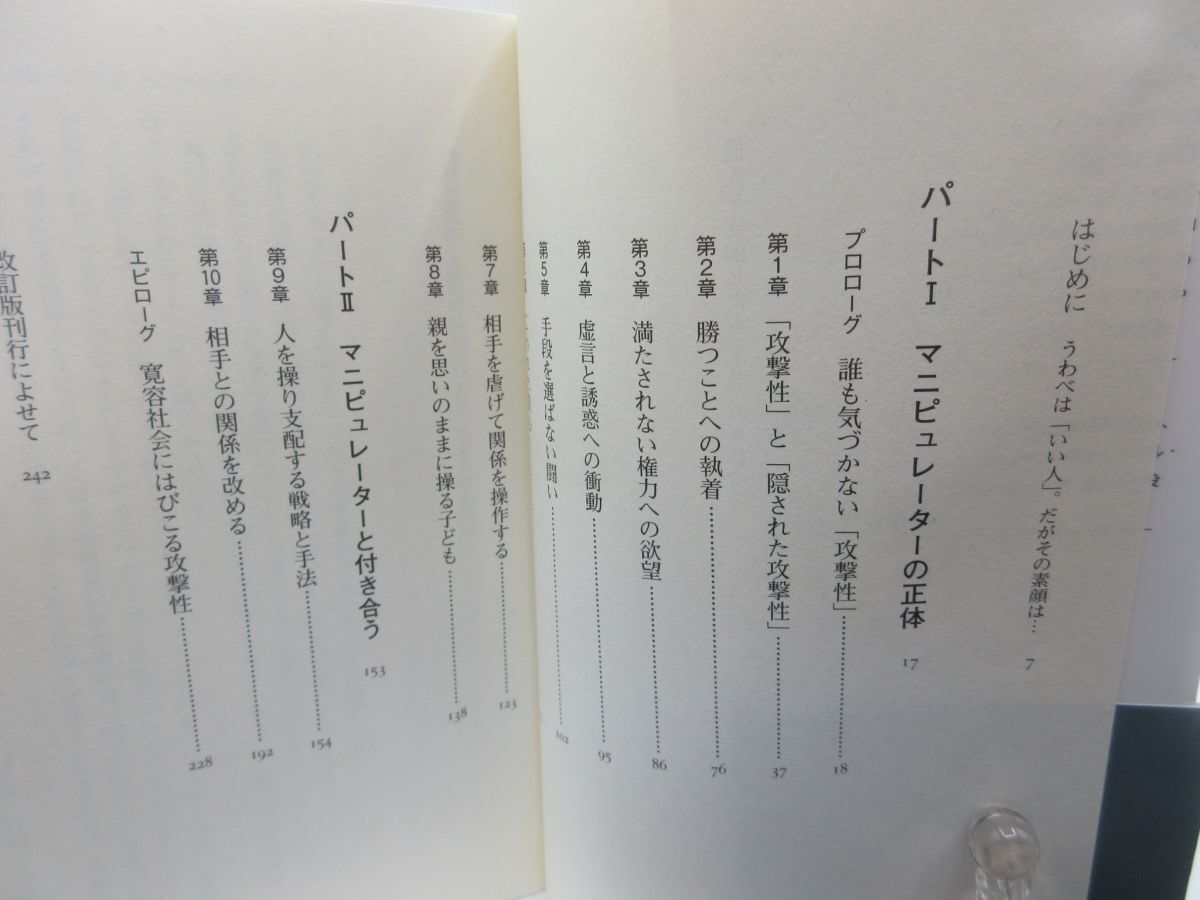 はじめに うわべは「いい人」。だがその素顔は… 7
パートⅠ マニピュレーターの正体 17
プロローグ 誰も気づかない「攻撃性」 18
第1章 「攻撃性」と「隠された攻撃性」 37
第2章 勝つことへの執着 76
第3章 満たされない権力への欲望 86
第4章 虚言と誘惑への衝動 95
第5章 手段を選ばない闘い 102
第7章 相手を虐げて関係を操作する 123
第8章 親を思いのままに操る子ども 138
パートⅡ マニピュレーターと付き合う 153
第9章 人を操り支配する戦略と手法 154
第10章 相手との関係を改める 192
エピローグ 寛容社会にはびこる攻撃性 228
改訂版刊行によせて 242